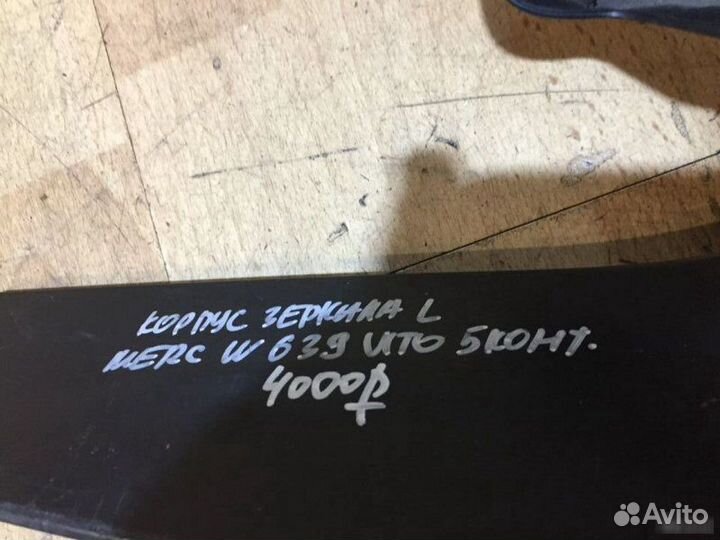 КОРПУС ЗЕРКАЛА L
MERC W 639 VITO 5КОНТ.
4000₽
Avito